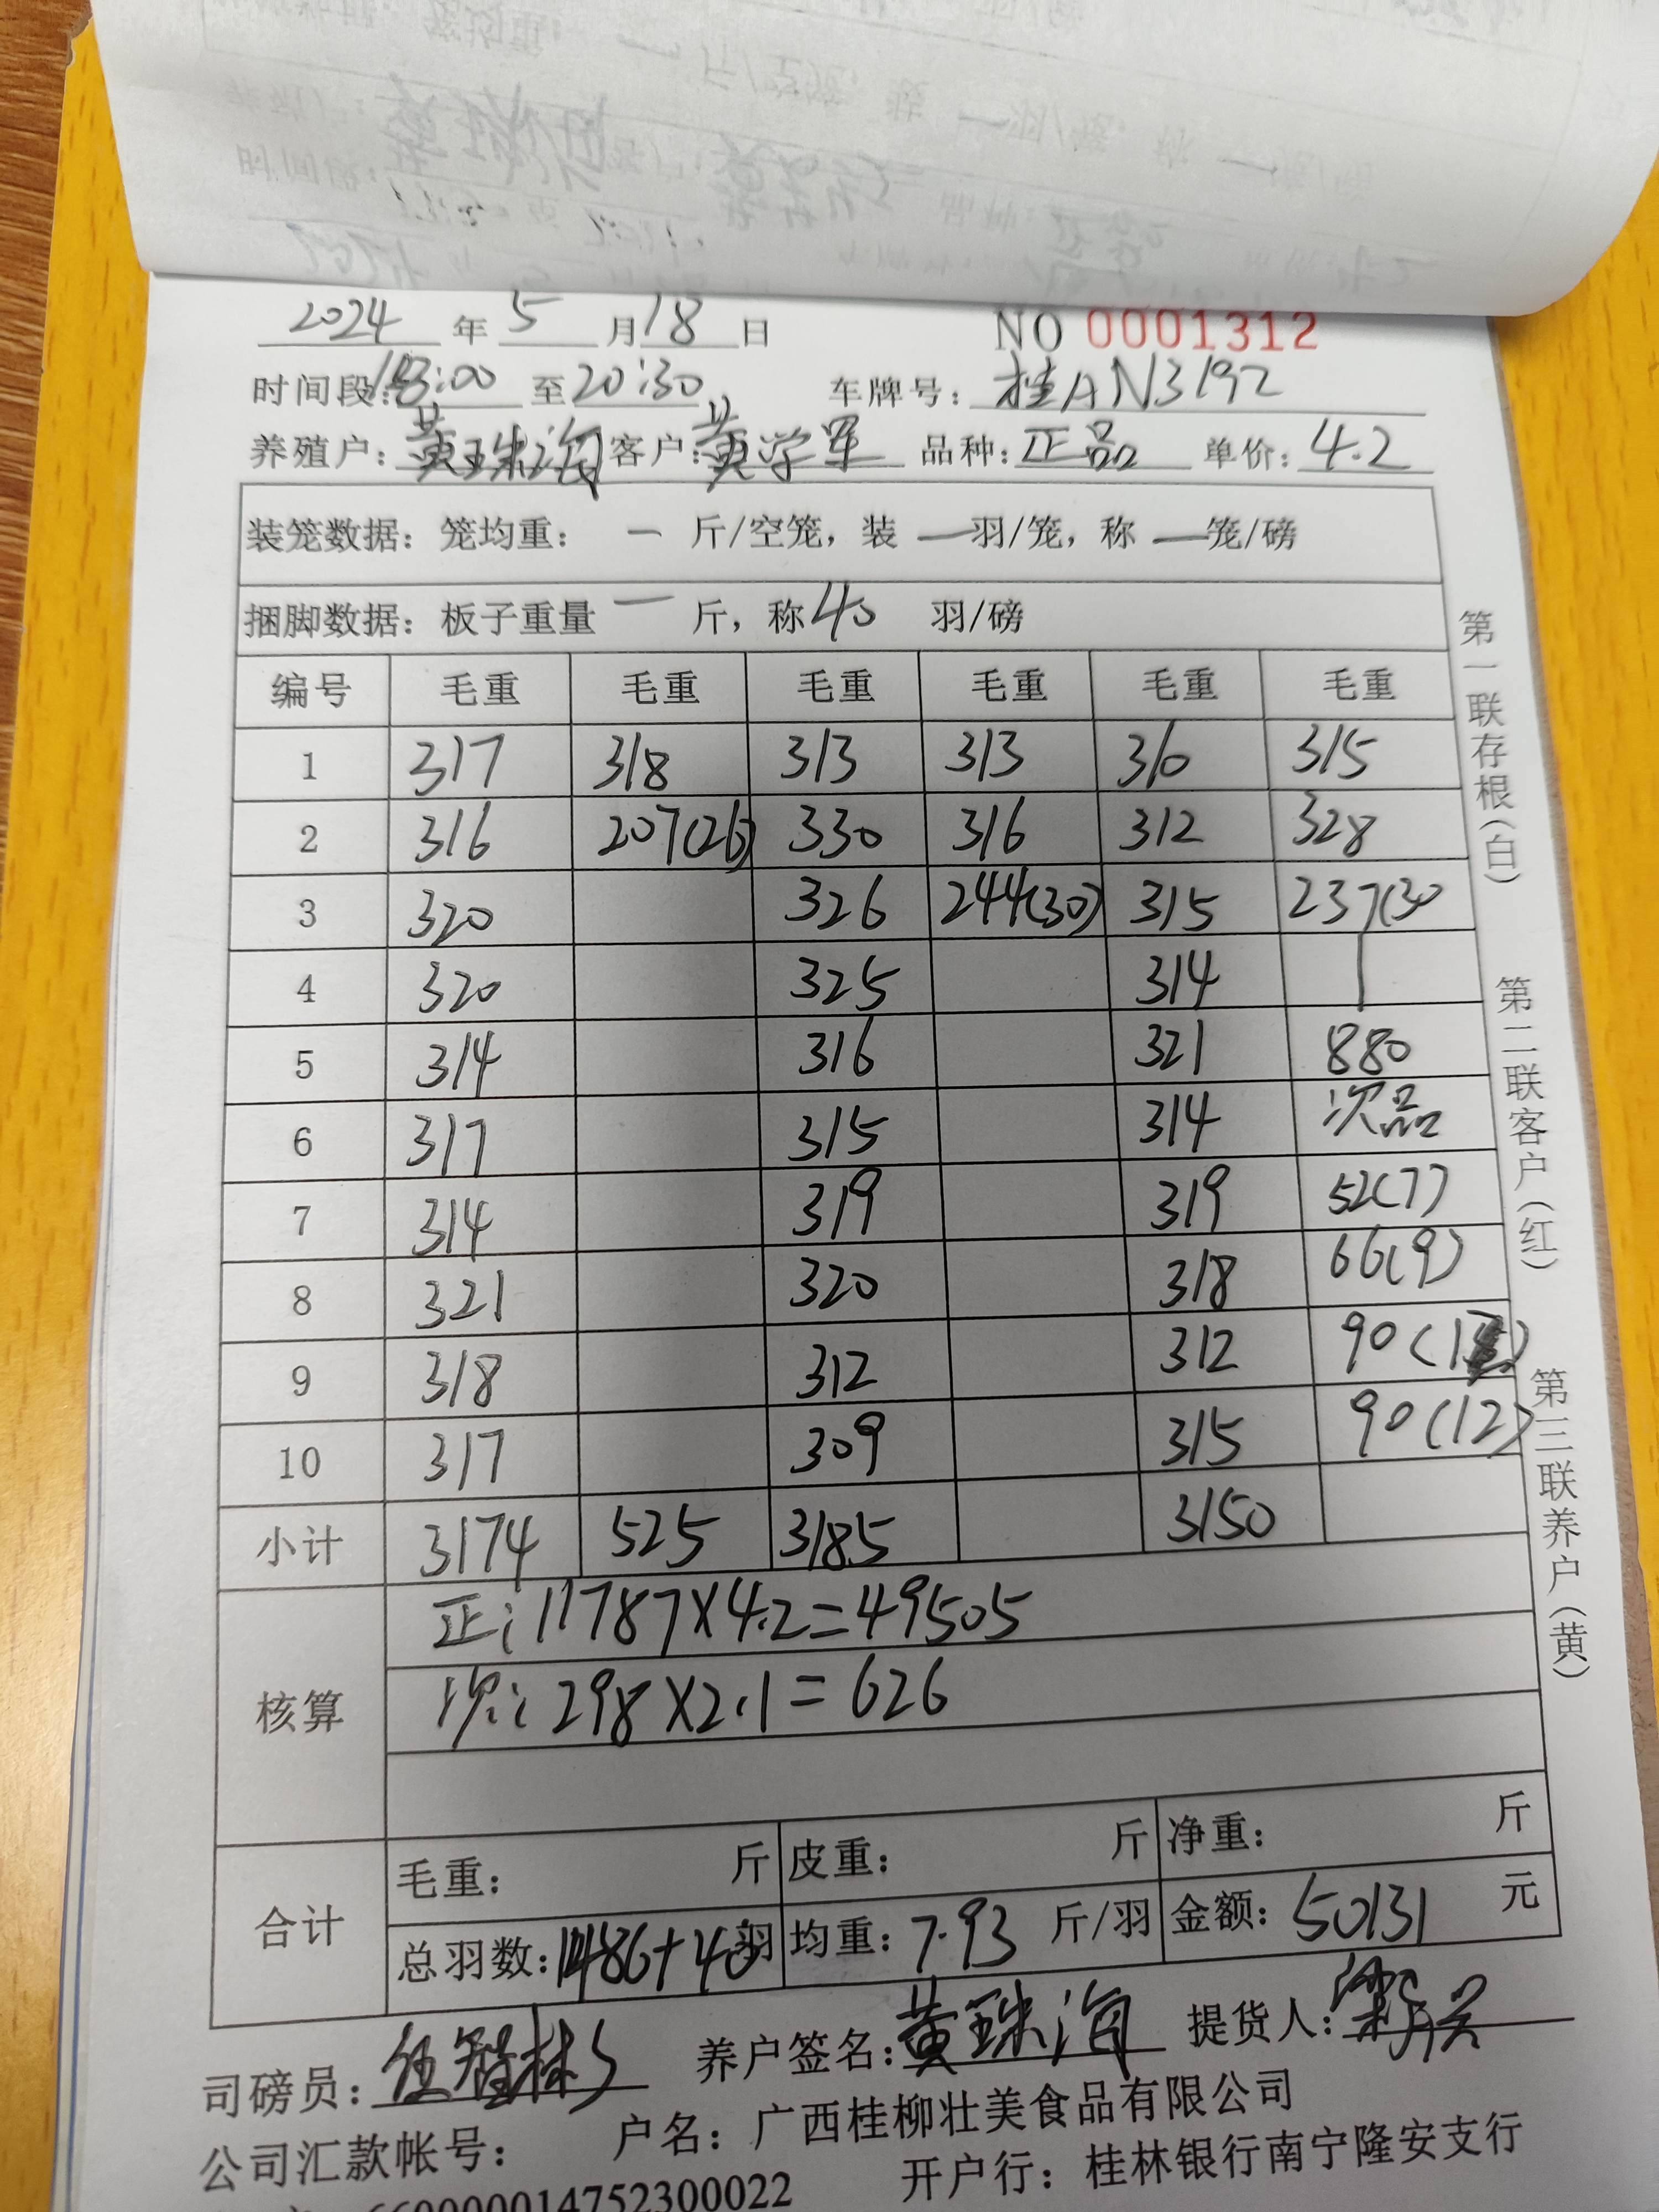 2024 年 5 月 18 日 NO 0001312
时间段:18:00 至 20:30 车牌号: 桂AN3192
养殖户: 黄珠海 客户: 黄学军 品种: 正品 单价: 4.2
装笼数据: 笼均重: 一 斤/空笼, 装 一 羽/笼, 称 一 笼/磅
捆脚数据: 板子重量 一 斤, 称 40 羽/磅
编号 毛重 毛重 毛重 毛重 毛重 毛重
1 317 318 313 313 310 315
2 316 207(26) 330 316 312 328
3 320 326 244(30) 315 237(30
4 320 325 314
5 314 316 321 880
6 317 315 314 次品
7 314 319 319 52(7)
8 321 320 318 66(9)
9 318 312 312 90(12)
10 317 309 315 90(12)
小计 3174 525 3185 3150
核算
正: 11787×4.2=49505
次: 298×2.1=626
合计
毛重: 斤 皮重: 斤 净重: 斤
总羽数: 1486+40 羽 均重: 7.93 斤/羽 金额: 50131 元
司磅员: 养户签名: 黄珠海 提货人:
公司汇款帐号: 户名: 广西桂柳壮美食品有限公司
660000014752300022 开户行: 桂林银行南宁隆安支行
第一联存根(白)
第二联客户(红)
第三联养户(黄)